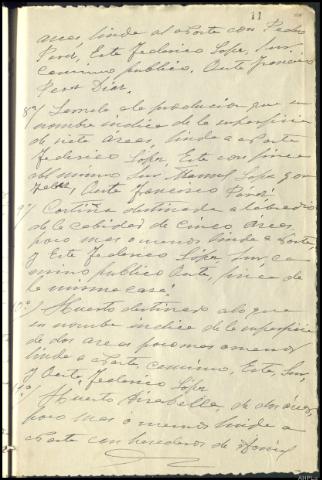 11
areas, linda al Norte con Pedro
Este Federico López, Sur,
camino publico, Oeste Francisco
Pera Díaz.
8º) de la produccion que su
nombre indica de la superficie
de siete áreas, linda a Norte
Federico López, Este con finca
del mismo Sur Manuel López
Oeste Francisco
9º) Cortiña destinada a labradio
de la cabida de cinco áreas,
poco mas o menos linda a Norte,
y Este Federico López Sur, ca
mino publico Oeste, finca de
la misma casa.
10º) Huerto destinado a lo que
su nombre indica de la superficie
de dos areas poco mas o menos
linda a Norte, camino, Este, Sur,
y Oeste, Federico López
Huerto de dos áreas,
poco mas o menos linda a
Norte con herederos de
AHPLu